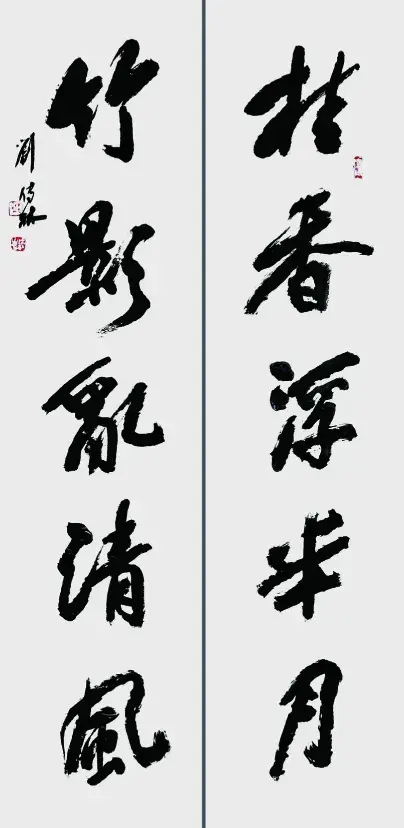 桂香浮半月
竹影亂清風
劉